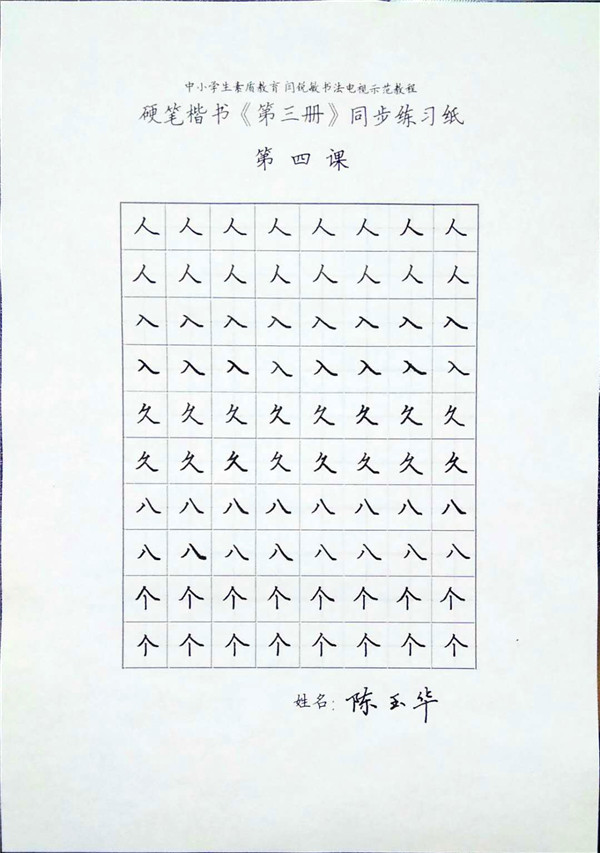 中小学生素质教育闫锐敏书法电视示范教程
硬笔楷书《第三册》同步练习纸
第四课
人人人人人人人人
人人人人人人人人
入入入入入入入入
入入入入入入入入
久久久久久久久久
久久久久久久久久
八八八八八八八八
八八八八八八八八
个个个个个个个个
个个个个个个个个
姓名:陈玉华